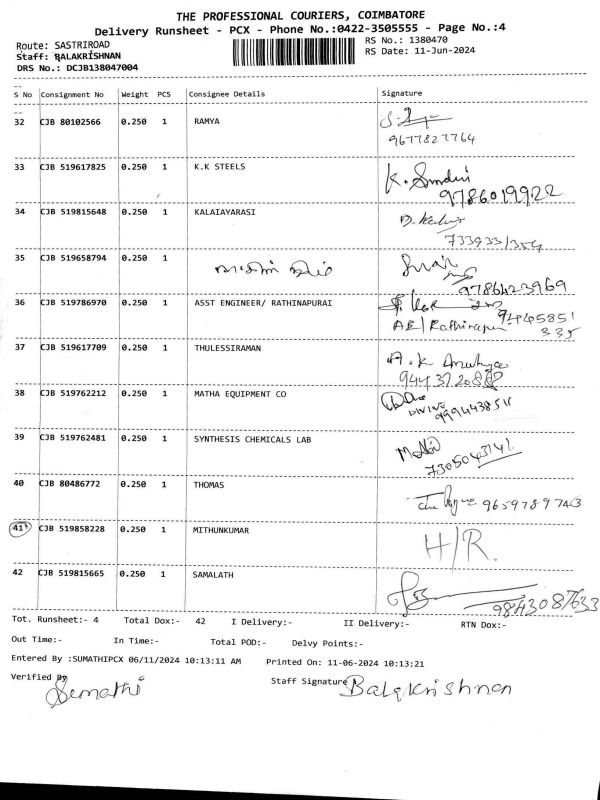 THE PROFESSIONAL COURIERS, COIMBATORE
Delivery Runsheet - PCX - Phone No.:0422-3505555 - Page No.:4
Route: SASTRIROAD RS No.: 1380470
Staff: BALAKRISHNAN RS Date: 11-Jun-2024
DRS No.: DCJB138047004
S No Consignment No Weight PCS Consignee Details Signature
32 CJB 80102566 0.250 1 RAMYA
9677827764
33 CJB 519617825 0.250 1 K.K STEELS K.
9786019922
34 CJB 519815648 0.250 1 KALAIAYARASI
35 CJB 519658794 0.250 1
9786423969
36 CJB 519786970 0.250 1 ASST ENGINEER/ RATHINAPURAI
AE/Rathinapuri
335
37 CJB 519617709 0.250 1 THULESSIRAMAN A.K
38 CJB 519762212 0.250 1 MATHA EQUIPMENT CO
DIVINE
39 CJB 519762481 0.250 1 SYNTHESIS CHEMICALS LAB
7305043141
40 CJB 80486772 0.250 1 THOMAS 9659789743
41 CJB 519858228 0.250 1 MITHUNKUMAR H/R.
42 CJB 519815665 0.250 1 SAMALATH
9843087633
Tot. Runsheet:- 4 Total Dox:- 42 I Delivery:- II Delivery:- RTN Dox:-
Out Time:- In Time:- Total POD:- Delvy Points:-
Entered By :SUMATHIPCX 06/11/2024 10:13:11 AM Printed On: 11-06-2024 10:13:21
Verified By Sumathi Staff Signature Balakrishnan